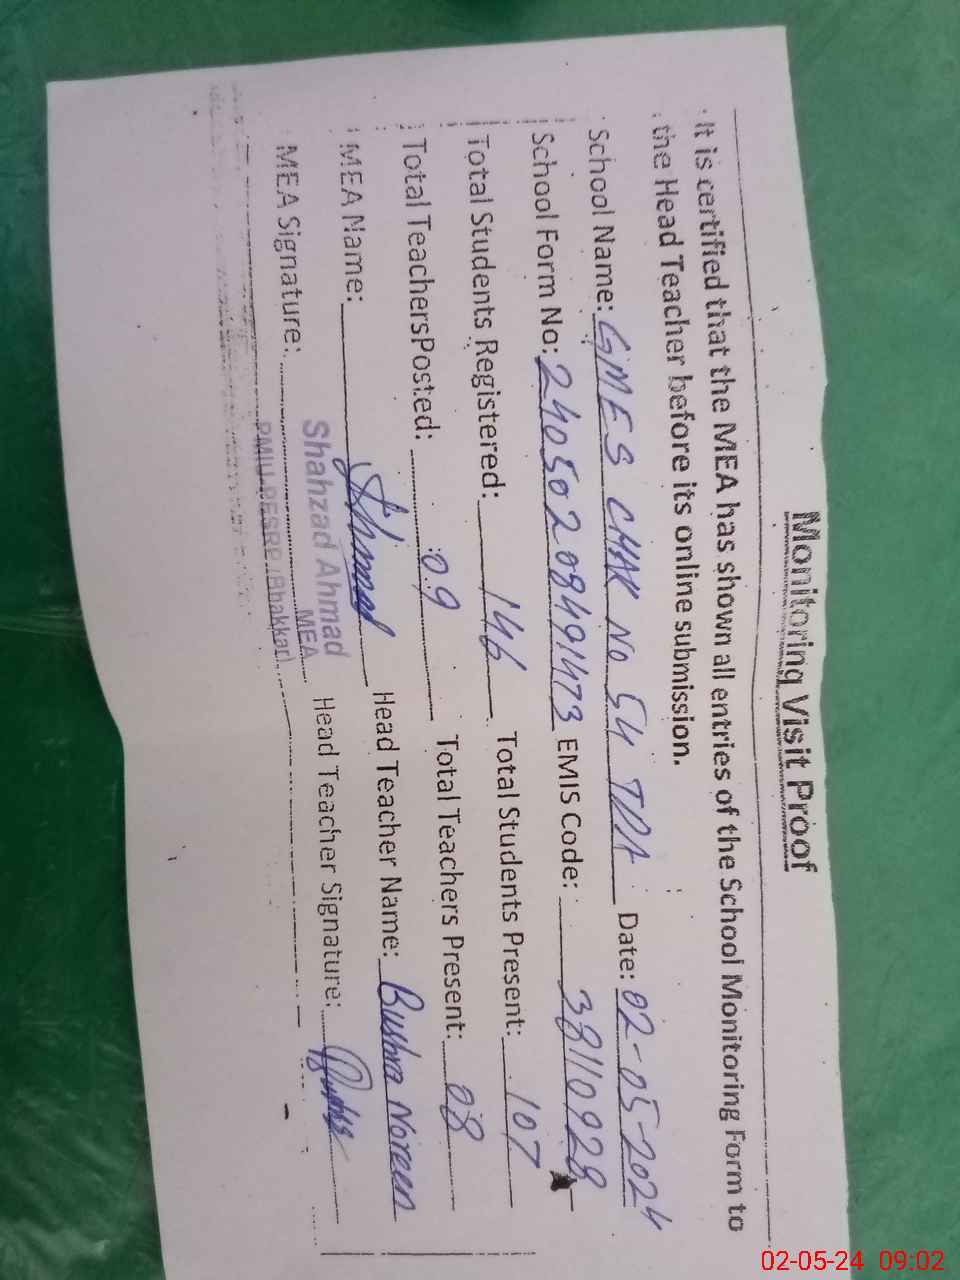 Monitoring Visit Proof
It is certified that the MEA has shown all entries of the School Monitoring Form to
the Head Teacher before its online submission.
School Name: GMES CHAK No 54 TDA Date: 02-05-2024
School Form No: 24050208491473 EMIS Code: 38110928
Total Students Registered: 146 Total Students Present: 107
Total TeachersPosted: 09 Total Teachers Present: 08
MEA Name: Ahmad Head Teacher Name: Bushra Noreen
MEA Signature: Head Teacher Signature:
Shahzad Ahmad
MEA
PMIU-PESRP (Bhakkar)
02-05-24 09:02